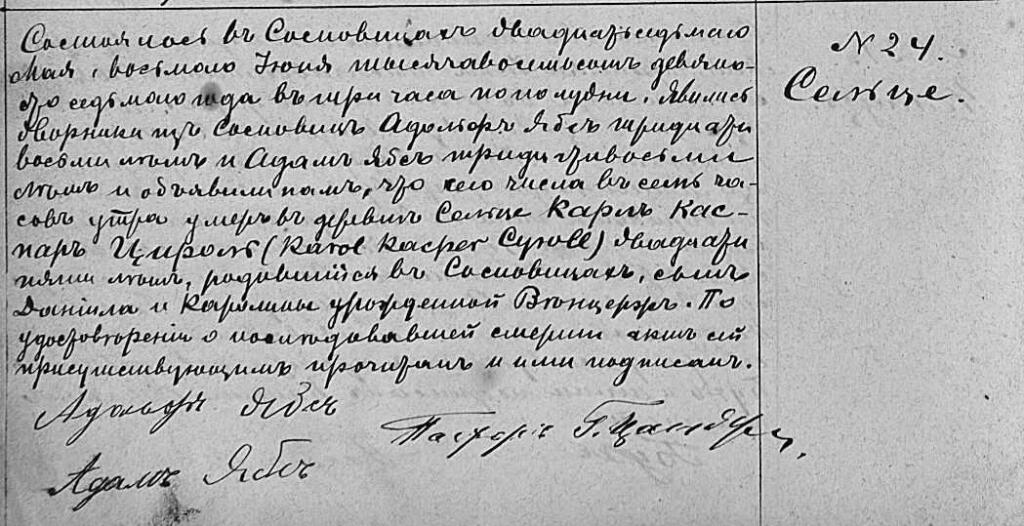 Состоялось въ Сосновицахъ двадцать седьмого
Мая, восьмого Іюня тысяча восемьсотъ девяно-
сто седьмого года въ три часа пополудни. Явились
дворники изъ Сосновицъ Адольфъ Ябсъ тридцати
восьми лѣтъ и Адамъ Ябсъ тридцати восьми
лѣтъ и объявили намъ, что сего числа въ семь ча-
совъ утра умеръ въ деревнѣ Сельце Карлъ Кас-
паръ Цироль (Karol Kacper Cyroll) двадцати
пяти лѣтъ, родившійся въ Сосновицахъ, сынъ
Даніила и Каролины урожденной. По
удостовѣреніи о послѣдовавшей смерти актъ сей
присутствующимъ прочитанъ и ими подписанъ.
Адольфъ Ябсъ
Пасторъ Г. Цандеръ
Адамъ Ябсъ
N 24.
Сельце.